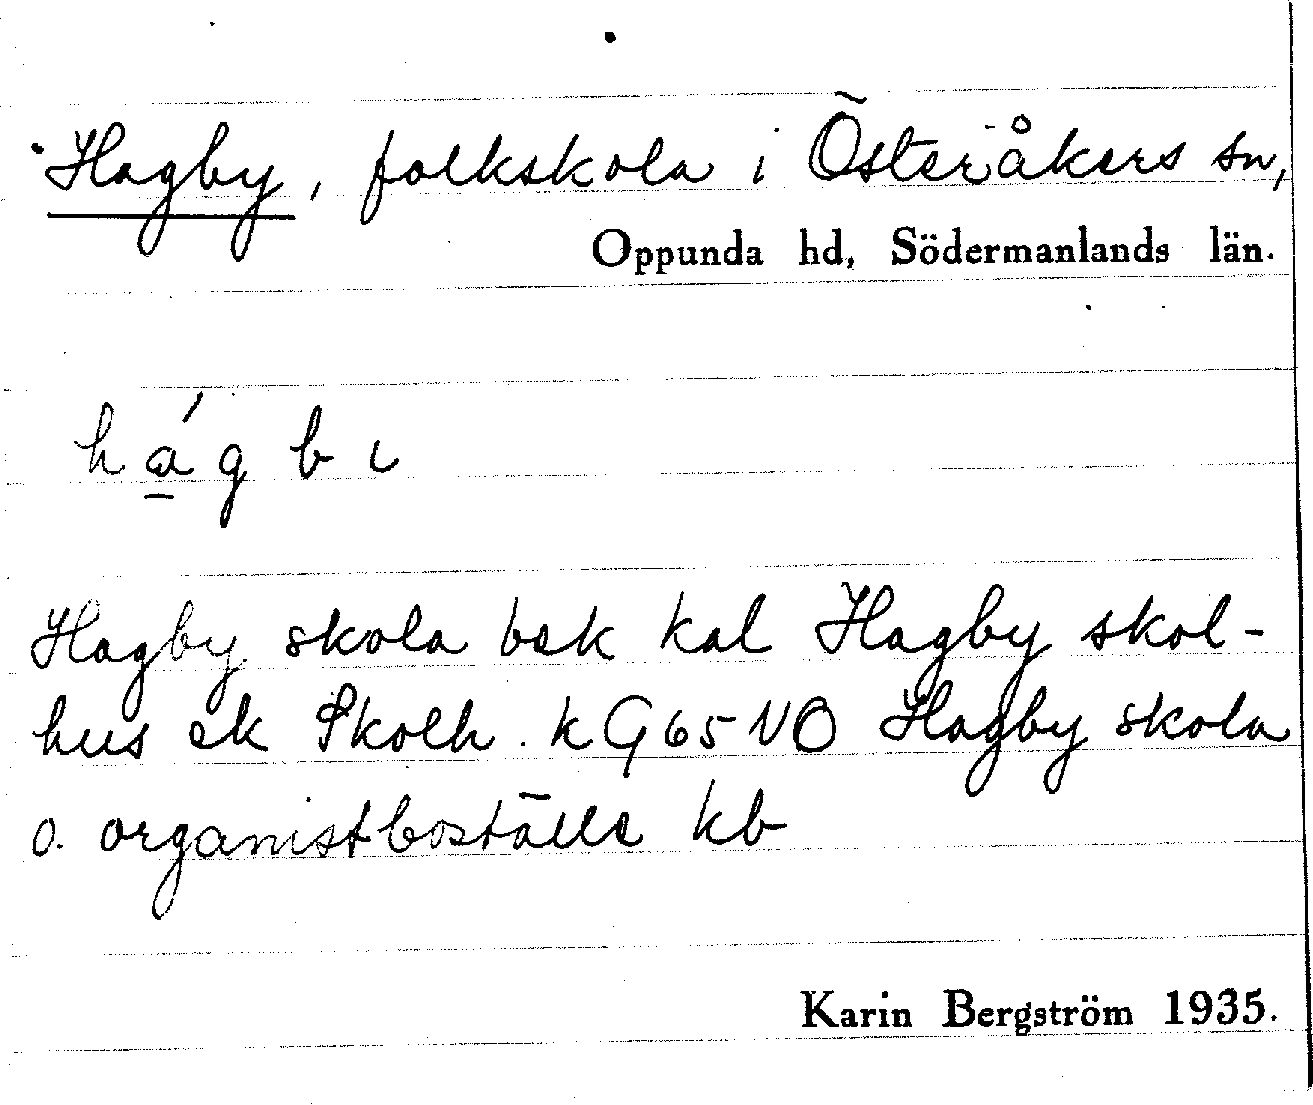 Hagby, folkskola i Österåkers sn,
Oppunda hd, Södermanlands län.
ha̱´gbι
Hagby skola bek kal Hagby skol-
hus ek Skolh. k G65 NO Hagby skola
o. organistboställe kb
Karin Bergström 1935.